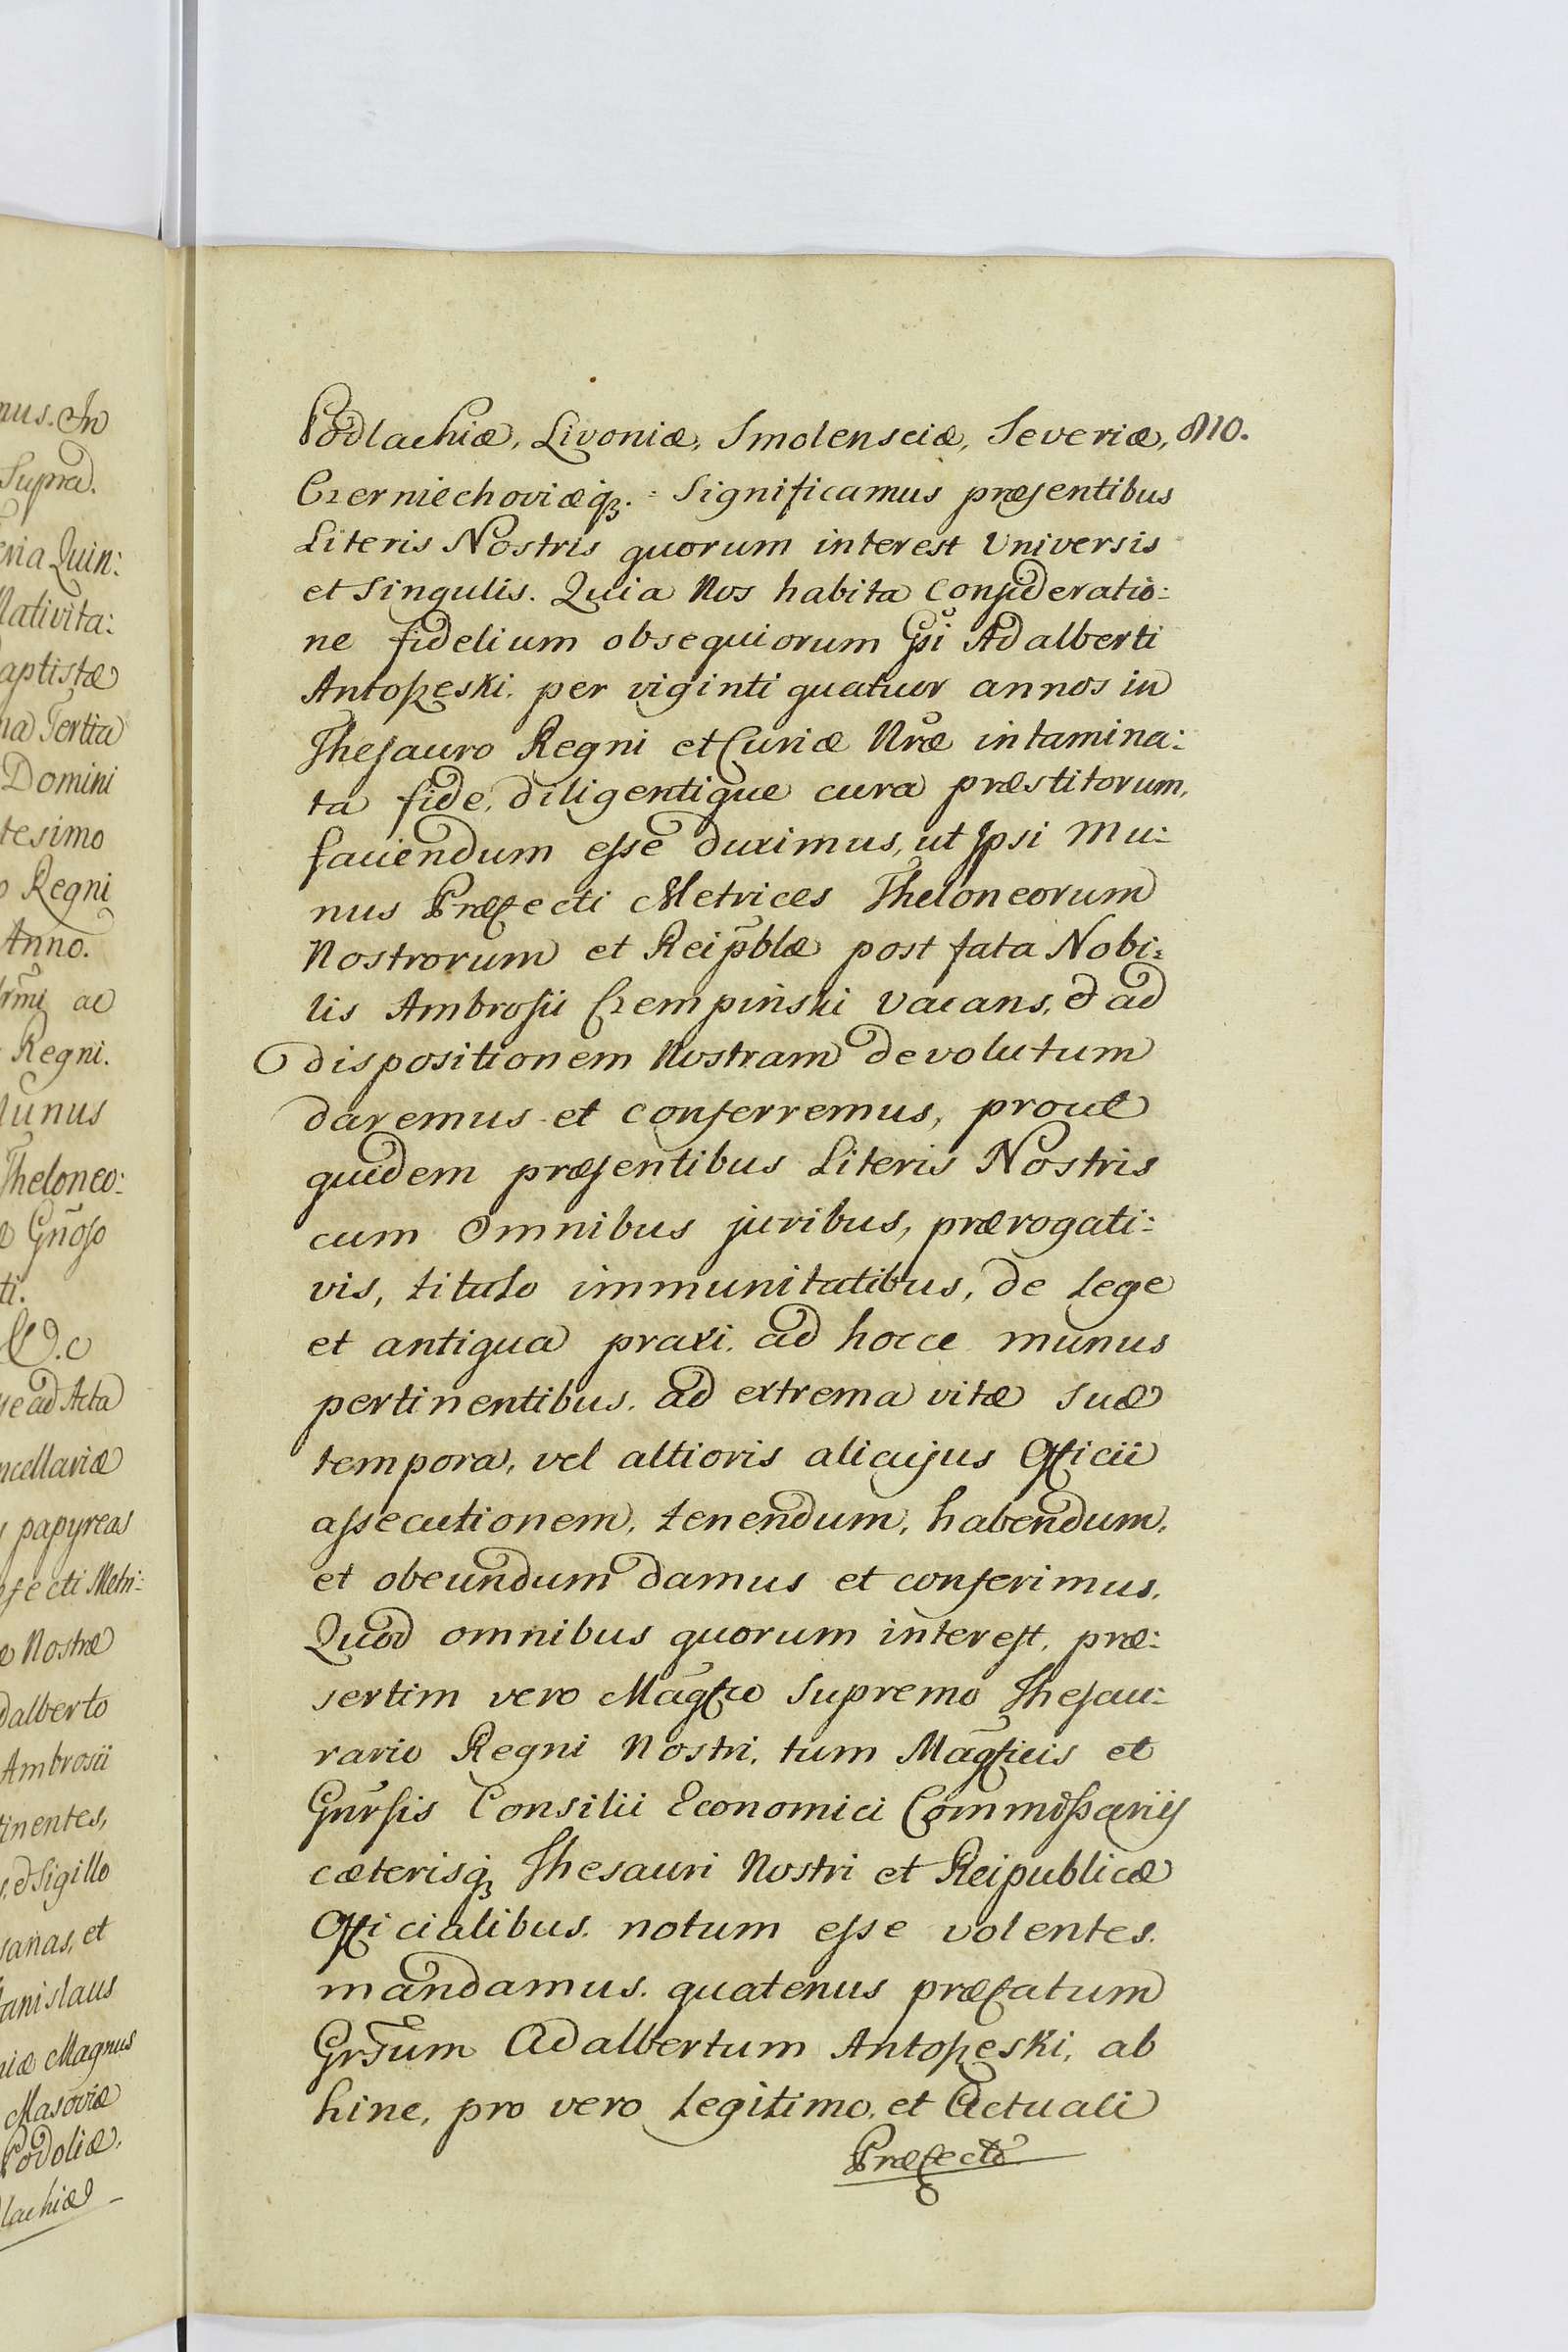 mus. In
Supra.
eria Quin:
Nativita:
aptistæ
na Tertia
Domini
tesimo
o Regni
Anno.
ac
Regni.
Munus
Theloneo:
Gnoso
ti.
se ad Acta
ncellariæ
papyreas
efecti Metri:
Nostræ
dalberto
Ambrosii
tinentes,
et Sigillo
et
tanislaus
niæ Magnus
Masoviæ
Podoliæ.
lachiæ
Podlachiæ, Livoniæ, Smolensciæ, Severiæ, 810.
Czerniechoviæq3. = Significamus præsentibus
Literis Nostris quorum interest Universis
et Singulis. Quia Nos habita Consideratio:
ne fidelium obsequiorum Gsi Adalberti
Antoszeski. per viginti quatuor annos in
Thesauro Regni et Curiæ Nræ intamina:
ta fide, diligentique cura præstitorum,
faciendum esse duximus, ut Ipsi Mu:
nus Præfecti Metrices Theloneorum
Nostrorum et Reipblæ post fata Nobi:
lis Ambrosii Czempiński vacans, et ad
dispositionem Nostram devolutum
daremus et conferremus, prout
quidem præsentibus Literis Nostris
cum Omnibus juribus, prærogati:
vis, titulo immunitatibus, de lege
et antiqua praxi. ad hocce munus
pertinentibus. ad extrema vitæ suæ
tempora, vel altioris alicujus Officii
assecutionem, tenendum, habendum,
et obeundum damus et conferimus.
Quod omnibus quorum interest, præ:
sertim vero Magfco Supremo Thesau:
rario Regni Nostri, tum Magficis et
Gnrsis Consilii Economici Commissariis
cæterisq3 Thesauri Nostri et Reipublicæ
Officialibus. notum esse volentes.
mandamus. quatenus præfatum
Grsum Adalbertum Antoszeski, ab
hinc, pro vero legitimo, et Actuali
Præfecto